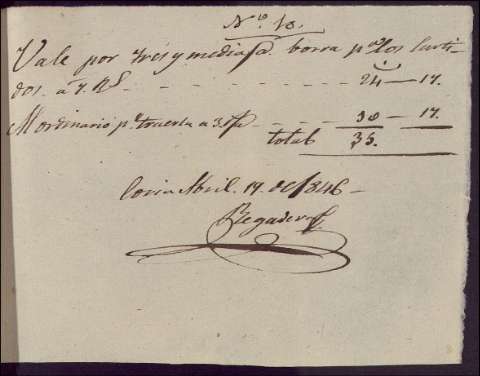 Nº 10.
Vale por tres y media @. borra pª los Curti-
dos. a 7. RS. 24 — 17.
Al ordinario pr. traerla a 3. rs/@ 10 — 17.
total 35.
Coria Abril. 17. de 1846 —
Regadera